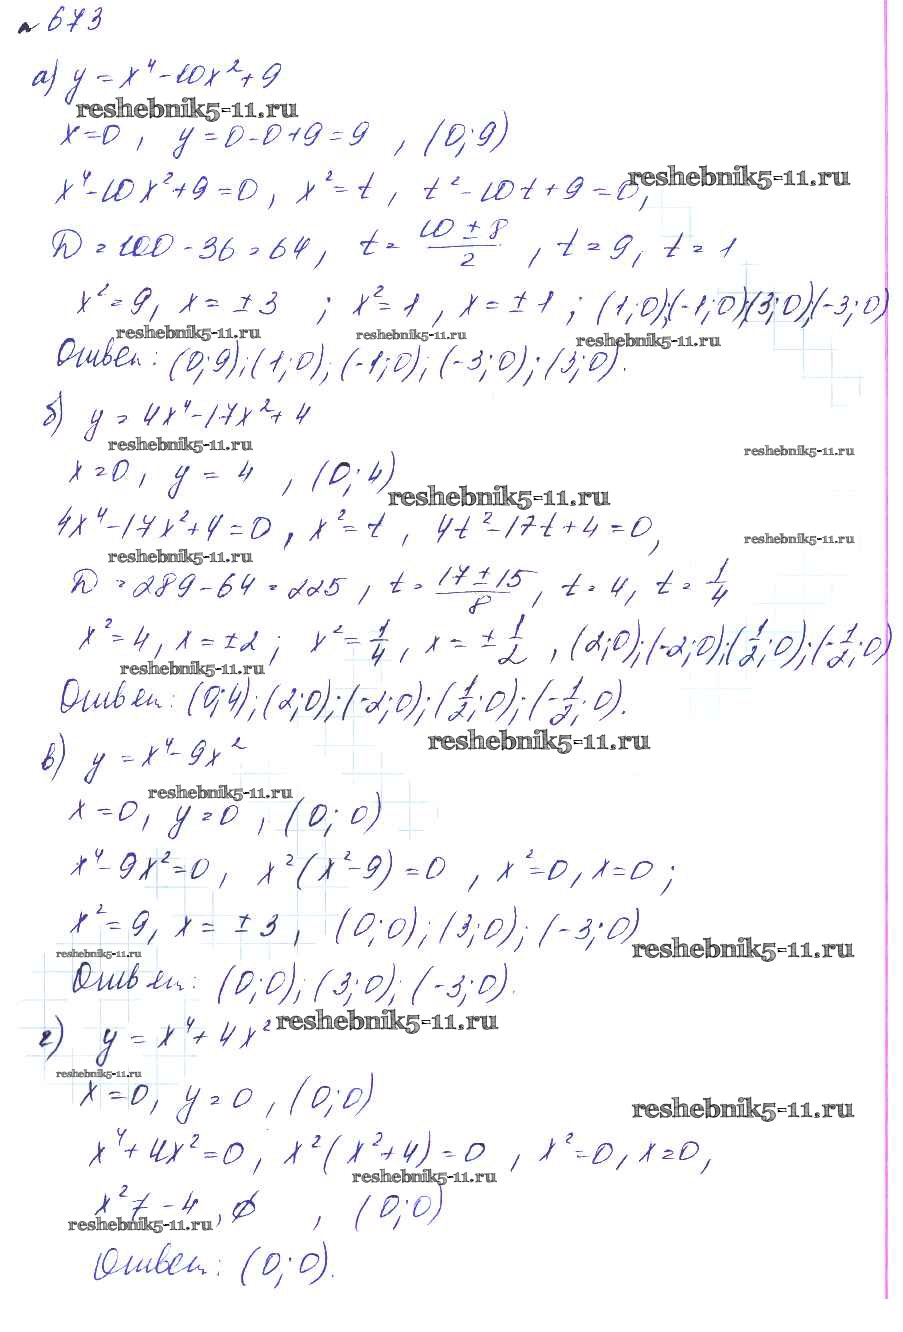 № 673
а) y = x⁴ - 10x² + 9
reshebnik5-11.ru
x = 0, y = 0 - 0 + 9 = 9, (0; 9)
reshebnik5-11.ru
x⁴ - 10x² + 9 = 0, x² = t, t² - 10t + 9 = 0,
D = 100 - 36 = 64, t = (10 ± 8)/2, t = 9, t = 1
x² = 9, x = ±3; x² = 1, x = ±1; (1; 0); (-1; 0); (3; 0); (-3; 0)
reshebnik5-11.ru reshebnik5-11.ru reshebnik5-11.ru
Ответ: (0; 9); (1; 0); (-1; 0); (-3; 0); (3; 0).
б) y = 4x⁴ - 17x² + 4
reshebnik5-11.ru reshebnik5-11.ru
x = 0, y = 4, (0; 4)
reshebnik5-11.ru
4x⁴ - 17x² + 4 = 0, x² = t, 4t² - 17t + 4 = 0,
reshebnik5-11.ru reshebnik5-11.ru
D = 289 - 64 = 225, t = (17 ± 15)/8, t = 4, t = 1/4
x² = 4, x = ±2; x² = 1/4, x = ± 1/2, (2; 0); (-2; 0); (1/2; 0); (-1/2; 0)
reshebnik5-11.ru
Ответ: (0; 4); (2; 0); (-2; 0); (1/2; 0); (-1/2; 0).
reshebnik5-11.ru
в) y = x⁴ - 9x²
reshebnik5-11.ru
x = 0, y = 0, (0; 0)
x⁴ - 9x² = 0, x²(x² - 9) = 0, x² = 0, x = 0;
x² = 9, x = ±3, (0; 0); (3; 0); (-3; 0)
reshebnik5-11.ru reshebnik5-11.ru
Ответ: (0; 0); (3; 0); (-3; 0).
г) y = x⁴ + 4x²
reshebnik5-11.ru
reshebnik5-11.ru
x = 0, y = 0, (0; 0)
reshebnik5-11.ru
x⁴ + 4x² = 0, x²(x² + 4) = 0, x² = 0, x = 0,
reshebnik5-11.ru
x² ≠ -4, ∅, (0; 0)
reshebnik5-11.ru
Ответ: (0; 0).